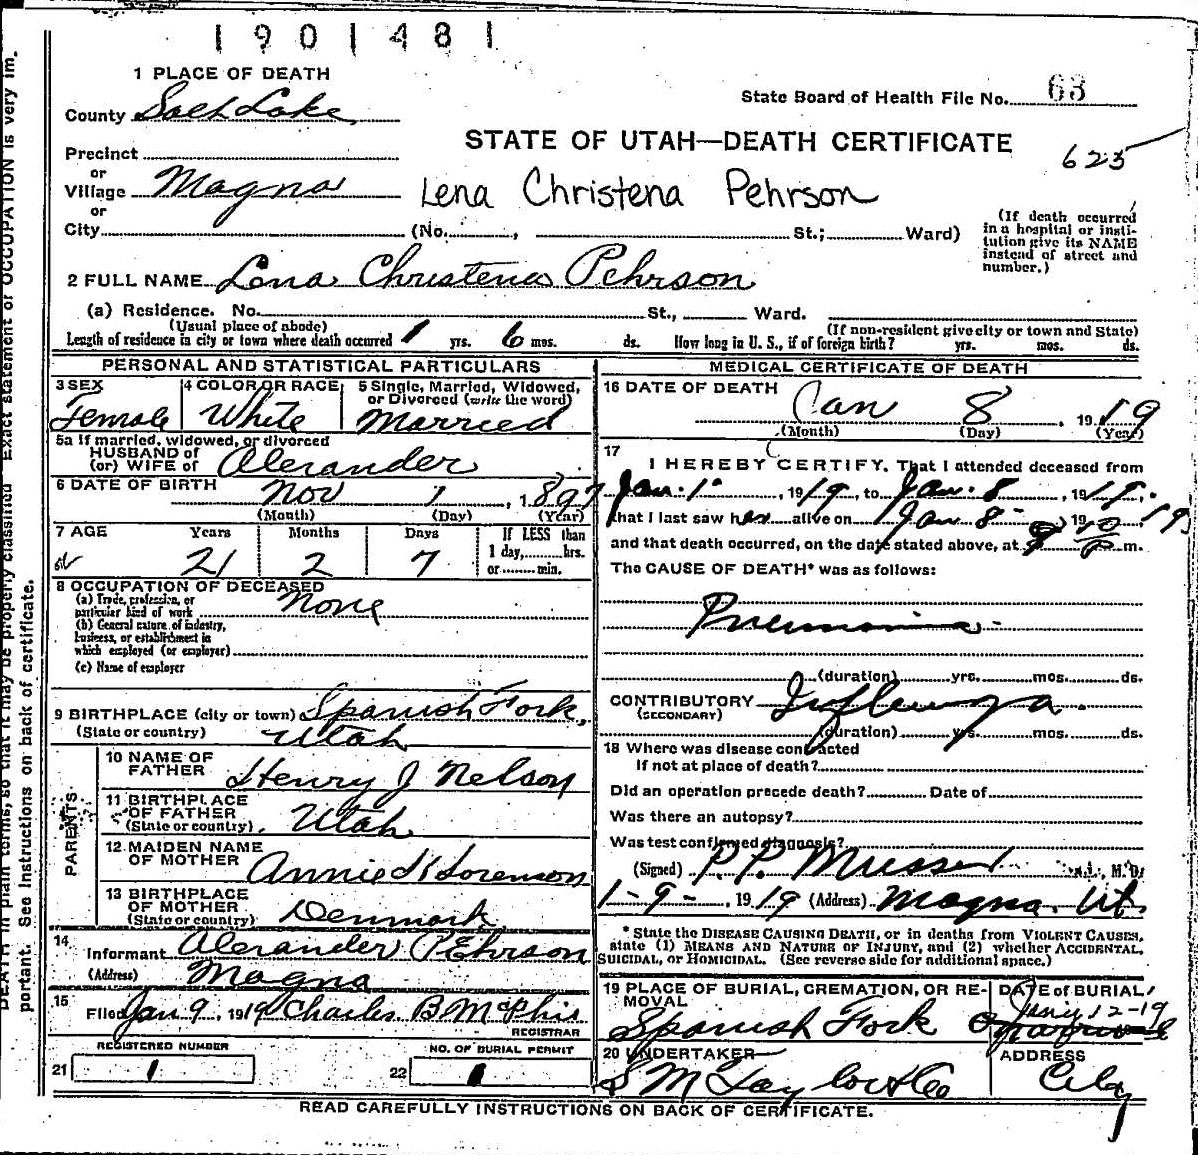 1901481
1 PLACE OF DEATH
State Board of Health File No. 63
County Salt Lake
STATE OF UTAH—DEATH CERTIFICATE
625
Precinct
or
Village Magna
Lena Christena Pehrson
or
City (No. , St.; Ward)
(If death occurred
in a hospital or insti-
tution give its NAME
instead of street and
number.)
2 FULL NAME Lena Christena Pehrson
(a) Residence. No. St., Ward.
(Usual place of abode)
(If non-resident give city or town and State)
Length of residence in city or town where death occurred 1 yrs. 6 mos. ds. How long in U. S., if of foreign birth? yrs. mos. ds.
PERSONAL AND STATISTICAL PARTICULARS
3 SEX
Female
4 COLOR OR RACE
White
5 Single, Married, Widowed,
or Divorced (write the word)
Married
5a If married, widowed, or divorced
HUSBAND of
(or) WIFE of Alexander
6 DATE OF BIRTH Nov 1, 1897
(Month) (Day) (Year)
7 AGE Years Months Days
21 2 7
If LESS than
1 day, hrs.
or min.
8 OCCUPATION OF DECEASED
(a) Trade, profession, or
particular kind of work None
(b) General nature of industry,
business, or establishment in
which employed (or employer)
(c) Name of employer
9 BIRTHPLACE (city or town) Spanish Fork,
(State or country) Utah
PARENTS
10 NAME OF
FATHER Henry J Nelson
11 BIRTHPLACE
OF FATHER
(State or country) Utah
12 MAIDEN NAME
OF MOTHER Annie K Sorenson
13 BIRTHPLACE
OF MOTHER
(State or country) Denmark
14
Informant Alexander Pehrson
(Address) Magna
15
Filed Jan 9, 1919 Charles B. McPhie
REGISTRAR
REGISTERED NUMBER
21 1
NO. OF BURIAL PERMIT
22 1
MEDICAL CERTIFICATE OF DEATH
16 DATE OF DEATH
Jan 8, 1919
(Month) (Day) (Year)
17
I HEREBY CERTIFY, That I attended deceased from
Jan. 1, 1919, to Jan. 8, 1919.
that I last saw her alive on Jan 8 1919
and that death occurred, on the date stated above, at 9 m.
The CAUSE OF DEATH* was as follows:
Pneumonia.
(duration) yrs. mos. ds.
CONTRIBUTORY Influenza.
(SECONDARY)
(duration) yrs. mos. ds.
18 Where was disease contracted
If not at place of death?
Did an operation precede death? Date of
Was there an autopsy?
Was test confirmed diagnosis?
(Signed) P. P. Musser M. D.
1-9-, 1919 (Address) Magna. Ut.
* State the DISEASE CAUSING DEATH, or in deaths from VIOLENT CAUSES,
state (1) MEANS AND NATURE OF INJURY, and (2) whether ACCIDENTAL,
SUICIDAL, or HOMICIDAL. (See reverse side for additional space.)
19 PLACE OF BURIAL, CREMATION, OR RE-
MOVAL
Spanish Fork
DATE of BURIAL
12-19
20 UNDERTAKER
S M Taylor & Co
ADDRESS
City
READ CAREFULLY INSTRUCTIONS ON BACK OF CERTIFICATE.
DEATH in plain terms, so that it may be properly classified. Exact statement of OCCUPATION is very im-
portant. See instructions on back of certificate.